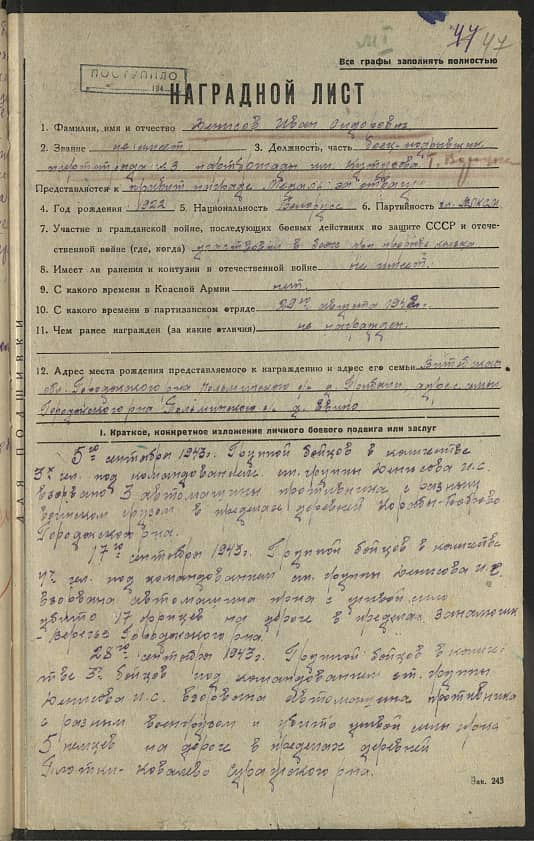 44 47
Все графы заполнять полностью
ПОСТУПИЛО
194
НАГРАДНОЙ ЛИСТ
1. Фамилия, имя и отчество Денисов Иван Сидорович
2. Звание не имеет 3. Должность, часть боец-подрывник
отряда №3 им. Кутузова
Представляется к правит. награде Медаль "За отвагу"
4. Год рождения 1922 5. Национальность Белорус 6. Партийность чл. ВЛКСМ
7. Участие в гражданской войне, последующих боевых действиях по защите СССР и отече-
ственной войне (где, когда) участвовал в
8. Имеет ли ранения и контузии в отечественной войне не имеет
9. С какого времени в Красной Армии нет
10. С какого времени в партизанском отряде 29го августа 1942г.
11. Чем ранее награжден (за какие отличия) не награжден.
12. Адрес места рождения представляемого к награждению и адрес его семьи Витебская
обл. Городокского р-на с/с д. адрес семьи
Городокского р-на с/с д.
I. Краткое, конкретное изложение личного боевого подвига или заслуг
5го сентября 1943г. Группой бойцов в количестве
3х чел. под командованием ст. группы Денисова И.С.
взорвано 3 автомашины противника с разным
воинским грузом в пределах деревней
Городокского р-на.
17го сентября 1943г. Группой бойцов в количестве
4х чел. под командованием ст. группы Денисова И.С.
взорвана автомашина пр-ка с живой силой
убито 17 фрицев на дороге в пределах
- Веречье Городокского р-на.
28го сентября 1943г. Группой бойцов в количес-
тве 3х бойцов под командованием ст. группы
Денисова И.С. взорвана автомашина противника
с разным военгрузом и убито живой силы пр-ка
5 немцев на дороге в пределах деревней
Плотки-Ковалево Суражского р-на.
Зак. 243
ДЛЯ ПОДШИВКИ